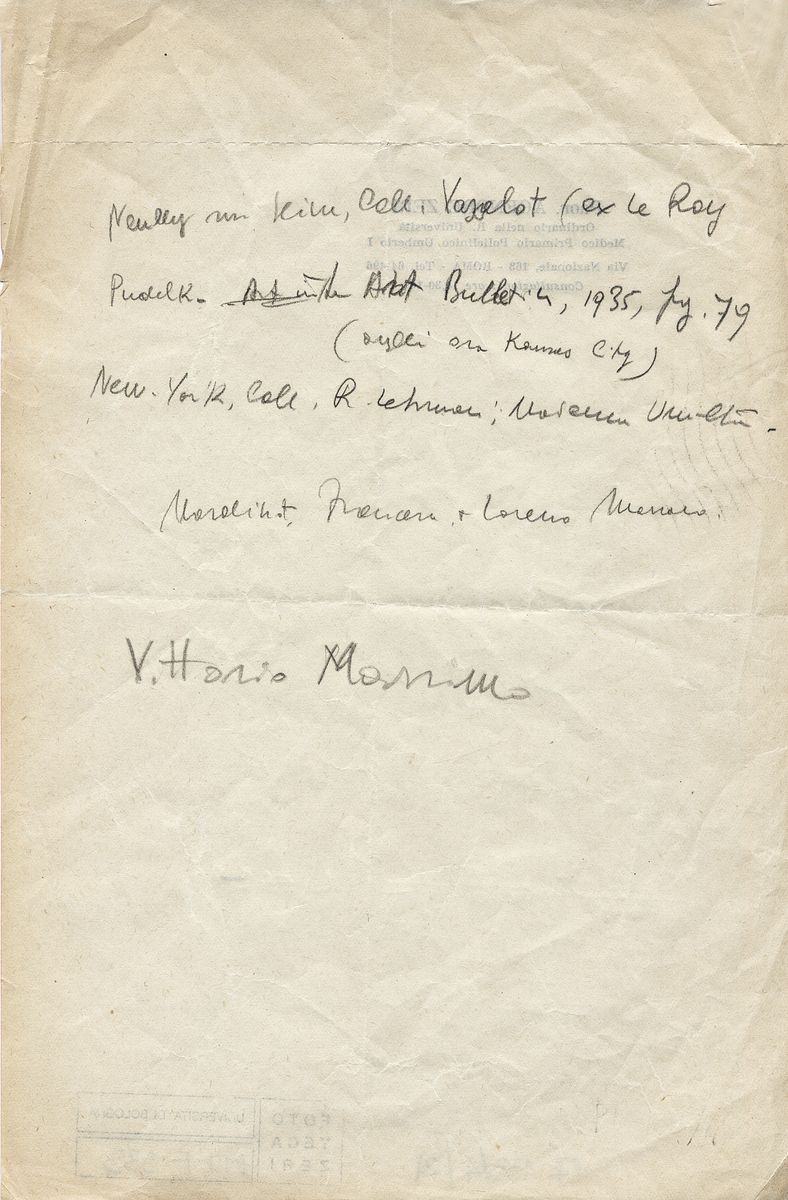 Neuilly sur Seine, Coll. (ex Le Roy
Pudelko Art in the Art Bulletin, 1935, fig. 79
(oggi ora Kansas City)
New-York, Coll. R. Lehman; Madonna Umiltà.
Mardinot, + Lorenzo Monaco.
Vittorio Massimo
Ordinario nella R. Università
Medico Primario Policlinico Umberto I
Via Nazionale, 163 - ROMA - Tel.
UNIVERSITA' DI BOLOGNA
FOTO
TECA
ZERI